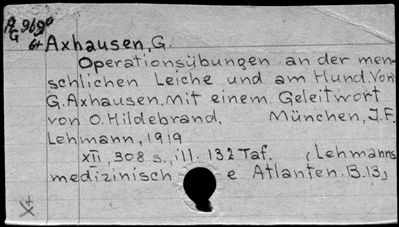 A 969
G
6+ Axhausen, G.
Operationsübungen an der men-
schlichen Leiche und am Hund. Von
G. Axhausen. Mit einem Geleitwort
von O. Hildebrand. München, J.F.
Lehmann, 1919
XII, 308 s., ill. 132 Taf. (Lehmanns
medizinisch e Atlanten. B.13)